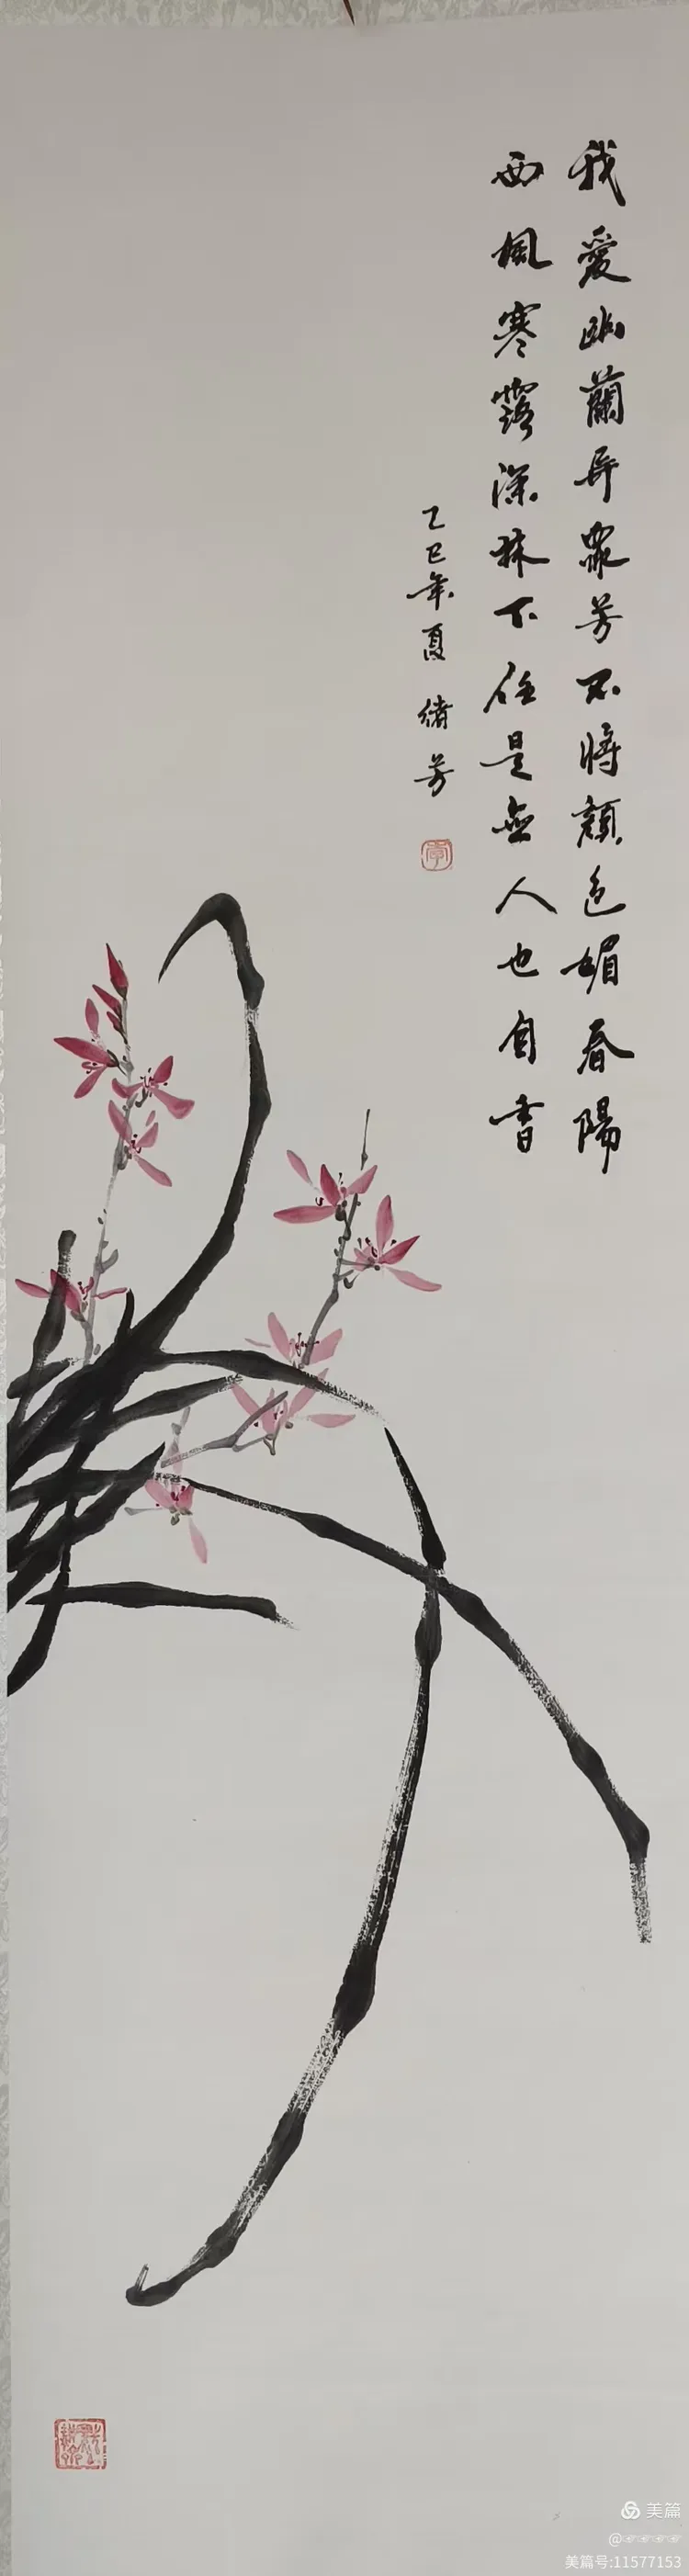 我愛幽蘭异眾芳不將顏色媚春陽
西風寒露深林下任是無人也自香
乙巳年夏 緒芳
李
美篇
美篇号:11577153